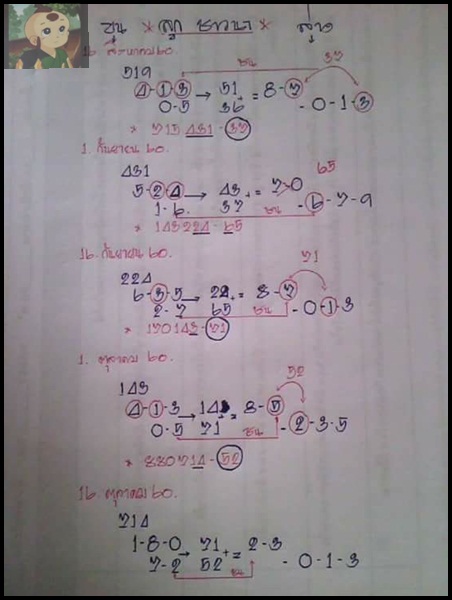 ขุน * ลูก ชาวนา * สูตร
16 สิงหาคม 60.
519 ชน 37
4-1-3 → 51 = 8-7
0-5 36 + - 0-1-3
* 715431-37
1. กันยายน 60.
431 65
5-2-4 → 43 + = 7-0
1-6. 37 ชน - 6-7-9
* 143224-65
16. กันยายน 60. 71
224
6-3-5 → 22 + = 8-7
2-7 65 ชน - 0-1-3
* 170143-71
1. ตุลาคม 60. 52
143
4-1-3 → 14 + = 8-5
0-5 71 ชน - 2-3-5
* 880714-52
16. ตุลาคม 60.
714
1-8-0 → 71 + = 2-3
7-2 52 ชน - 0-1-3